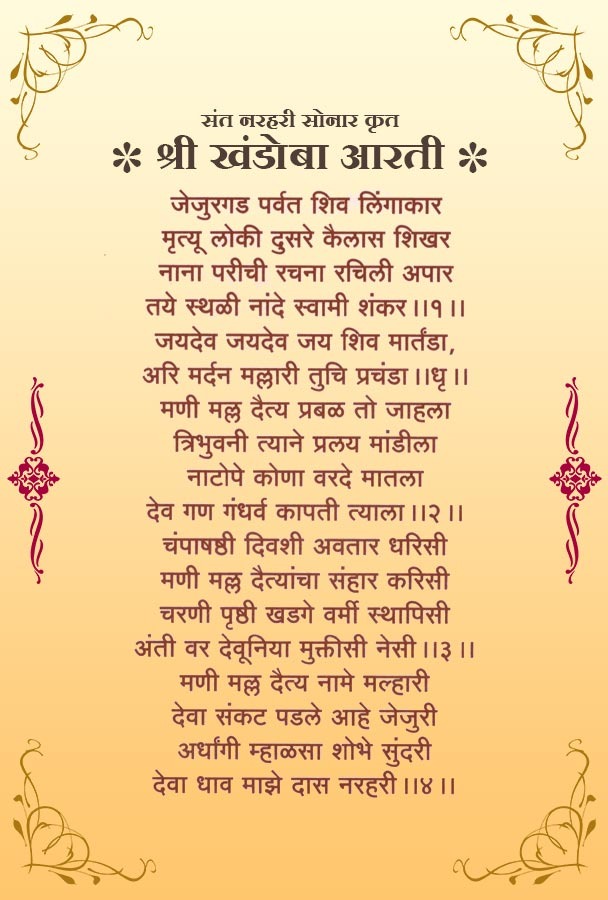 संत नरहरी सोनार कृत
* श्री खंडोबा आरती *
जेजुरगड पर्वत शिव लिंगाकार
मृत्यू लोकी दुसरे कैलास शिखर
नाना परीची रचना रचिली अपार
तये स्थळी नांदे स्वामी शंकर ।।१।।
जयदेव जयदेव जय शिव मार्तंडा,
अरि मर्दन मल्लारी तुचि प्रचंडा ।।धृ।।
मणी मल्ल दैत्य प्रबळ तो जाहला
त्रिभुवनी त्याने प्रलय मांडीला
नाटोपे कोणा वरदे मातला
देव गण गंधर्व कापती त्याला ।।२।।
चंपाषष्ठी दिवशी अवतार धरिसी
मणी मल्ल दैत्यांचा संहार करिसी
चरणी पृष्ठी खडगे वर्मी स्थापिसी
अंती वर देवूनिया मुक्तीसी नेसी ।।३।।
मणी मल्ल दैत्य नामे मल्हारी
देवा संकट पडले आहे जेजुरी
अर्धांगी म्हाळसा शोभे सुंदरी
देवा धाव माझे दास नरहरी ।।४।।